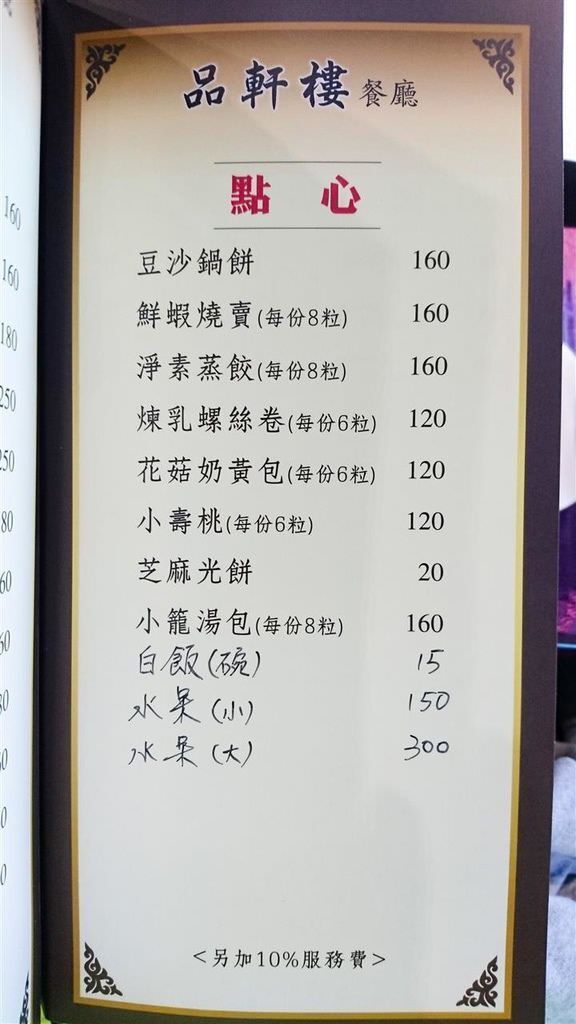 品軒樓餐廳
點心
豆沙鍋餅 160
鮮蝦燒賣(每份8粒) 160
淨素蒸餃(每份8粒) 160
煉乳螺絲卷(每份6粒) 120
花菇奶黃包(每份6粒) 120
小壽桃(每份6粒) 120
芝麻光餅 20
小籠湯包(每份8粒) 160
白飯(碗) 15
水果(小) 150
水果(大) 300
<另加10%服務費>
160
160
180
250
250